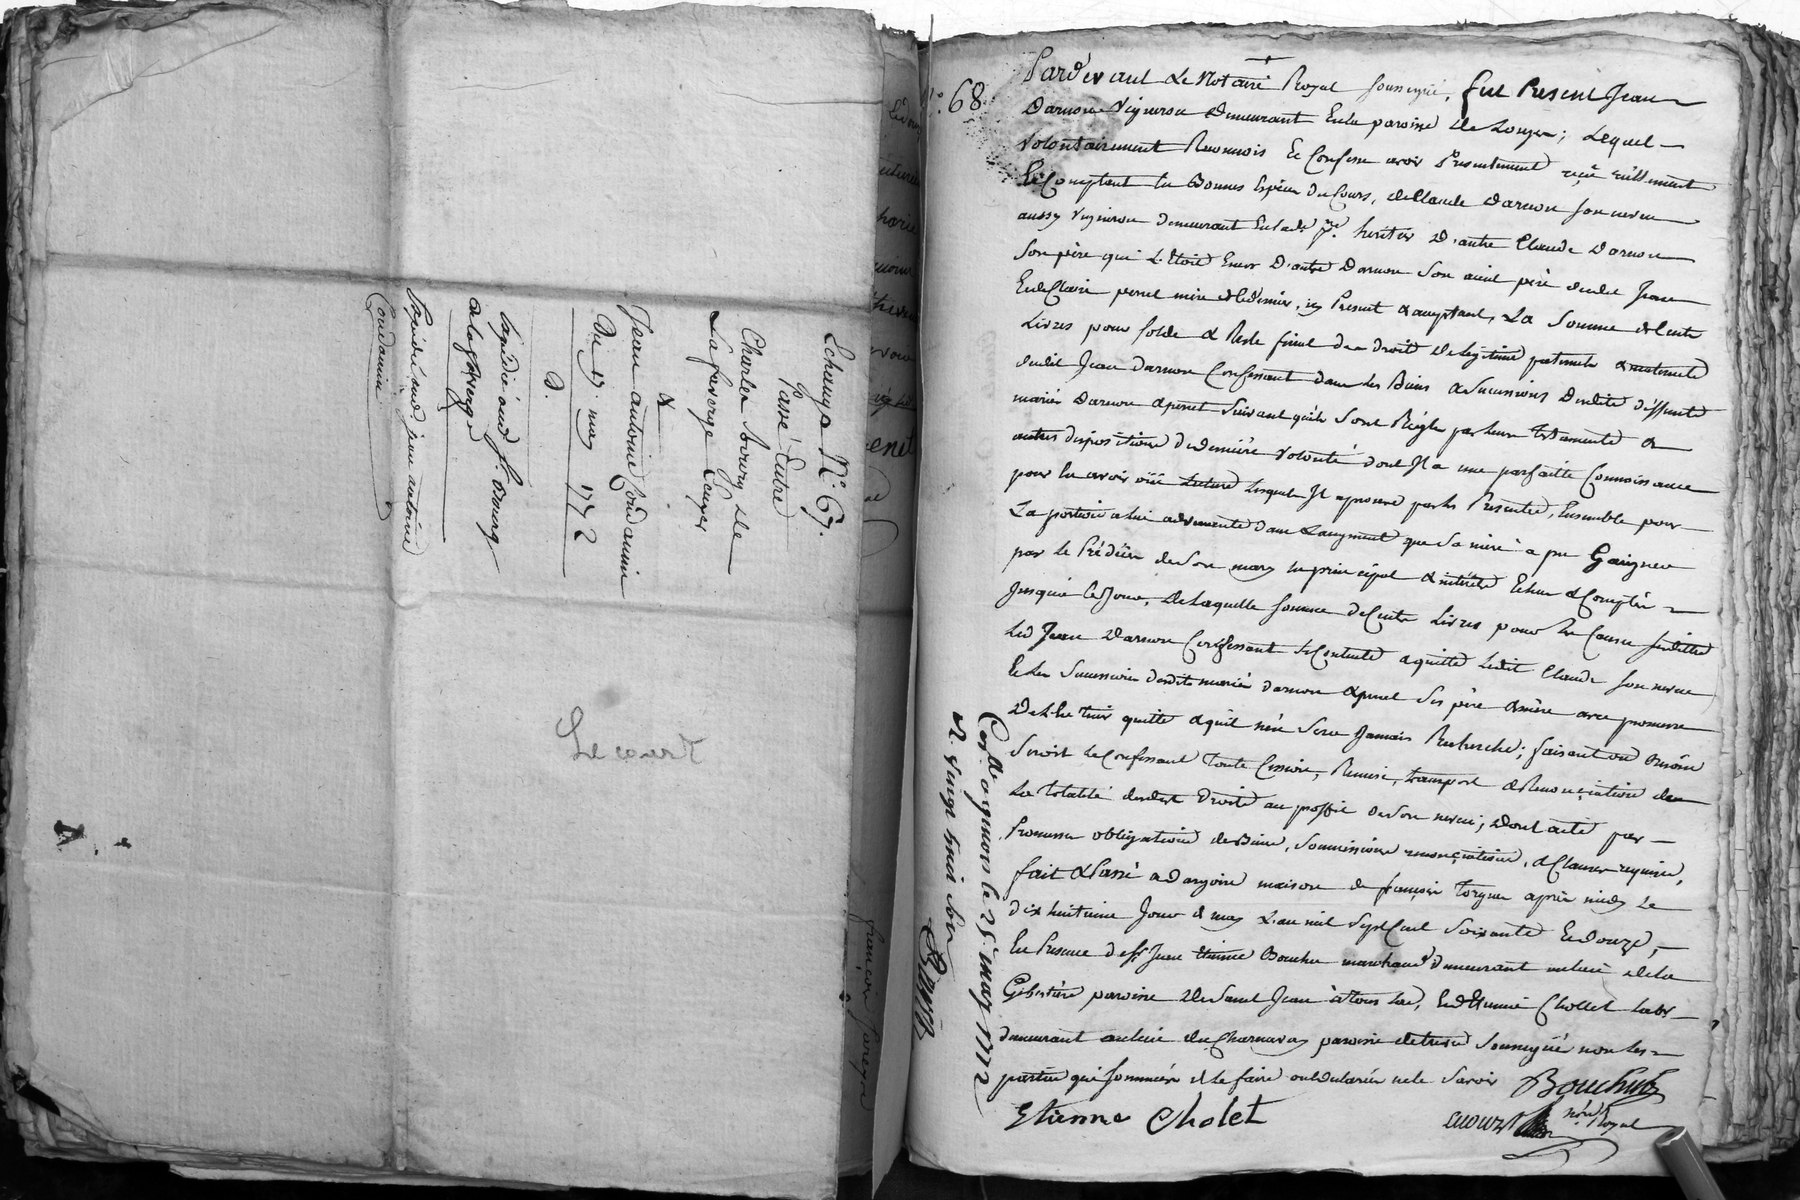 Echange N.o 67.
Passé Entre
Charles Souvery de
Lafaverge Ecuyer
&
Jean antoine Condamin
Du 17 may 1772
D.
Expédié aud. Sr. Souvery
de lafaverge
Expédié aud. jean antoine
Condamin
Le court
N.o 68.
Pardevant Le Notaire Royal soussigné, fut Present Jean
Darnon Vigneron Demeurant En la paroisse de Longes ; Lequel
Volontairement Reconnois Et Confesse avoir Présentement reçu réellement
Et Comptant En Bonnes Espèces du Cours, de Claude Darnon son neveu
aussy Vigneron demeurant En lade. pse. heritier D'autre Claude Darnon
Son père qui L'Etoit Encor D'autre Darnon Son aieul père dudit Jean
Et de Claire penel mere de ce dernier, icy Present & acceptant, La Somme de Cent
Livres pour solde & Reste final des droits De légitime paternels & maternels
dudit Jean Darnon Confessant dans les Biens & Successions Desdits deffunts
mariés Darnon & penel Suivant qu'ils Sont Réglés par leurs testaments &
autres dispositions de dernière Volonté dont Il a une parfaite Connoissance
pour En avoir oüi lecture lesquels Il approuve par les Presentes, Ensemble pour
La portion a lui advenante dans L'augment que Sa mère a pu Gaigner
par le Prédécès de Son mary En principal & intérêts Echus & Comptés
Jusqu'à Ce Jour, De Laquelle somme de Cents Livres pour les Causes susdittes
Led. Jean Darnon Confessant Se Contente & quitte Ledit Claude son neveu
Et les Successions desdits mariés darnon & penel Ses père & mère avec promesse
De L'en tenir quitte & qu'il n'en Sera Jamais Recherché ; faisant au Besoin
Seroit Le Confessant toute Cession, Remise, transport & Renonciation de
La totalité desdits Droits au proffit de Son neveu ; Dont acte par
Promesse obligation de Biens, Soumissions renonciations, & Clauses requises,
fait & Passé a Dargoire maison de françois Torgue après midy Le
dix huitieme Jour de may L'an mil Sept Cent Soixante Et douze,
En Presence de Sr. Jean Etienne Bouchu marchand demeurant au lieu de la
Gibertière paroisse De Saint Jean à toulas, Et d'Etienne Chollet labr
demeurant au lieu du Charnavay paroisse de treves Soussignés non les
parties qui sommées de le faire ont déclarées ne le Savoir Bouchu
Etienne Cholet
nore. Royal
Con.lé a Givors le 25e. may 1772
R. vingt huit sols
françois Gareyron